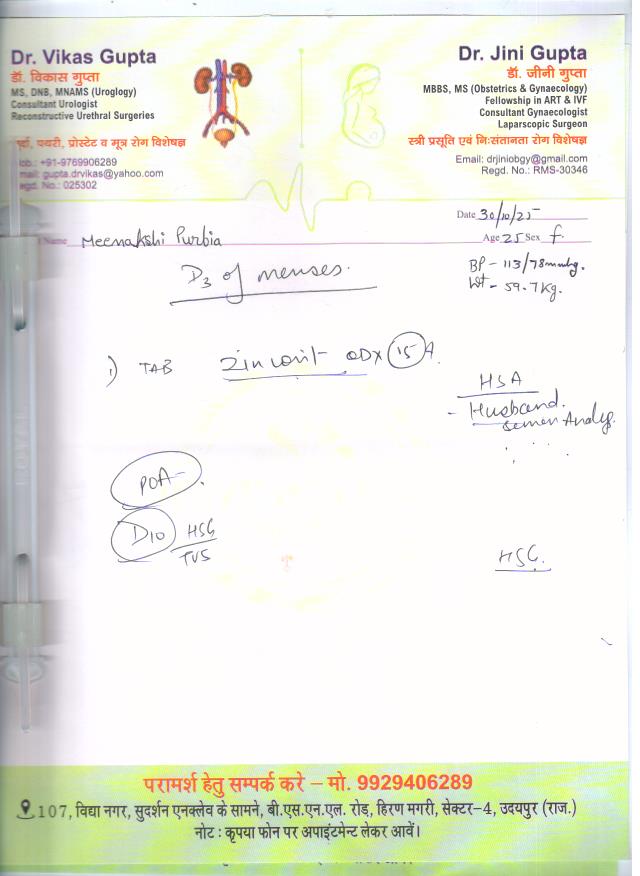 Dr. Vikas Gupta
डॉ. विकास गुप्ता
MS, DNB, MNAMS (Uroglogy)
Consultant Urologist
Reconstructive Urethral Surgeries
पथरी, प्रोस्टेट व मूत्र रोग विशेषज्ञ
ob.: +91-9769906289
mail: gupta.drvikas@yahoo.com
egd. No.: 025302
Dr. Jini Gupta
डॉ. जीनी गुप्ता
MBBS, MS (Obstetrics & Gynaecology)
Fellowship in ART & IVF
Consultant Gynaecologist
Laparscopic Surgeon
स्त्री प्रसूति एवं निःसंतानता रोग विशेषज्ञ
Email: drjiniobgy@gmail.com
Regd. No.: RMS-30346
Date 30/10/25
Name Meenakshi Purbia
Age 25 Sex f.
D3 of menses.
BP - 113/78mmhg.
Wt - 59.7 Kg.
1) TAB ODX 15
HSA
- Husband.
Semen Analy.
POA
D10 HSG
TVS
HSG.
परामर्श हेतु सम्पर्क करे – मो. 9929406289
107, विद्या नगर, सुदर्शन एनक्लेव के सामने, बी.एस.एन.एल. रोड़, हिरण मगरी, सेक्टर-4, उदयपुर (राज.)
नोट : कृपया फोन पर अपाइंटमेन्ट लेकर आवें।